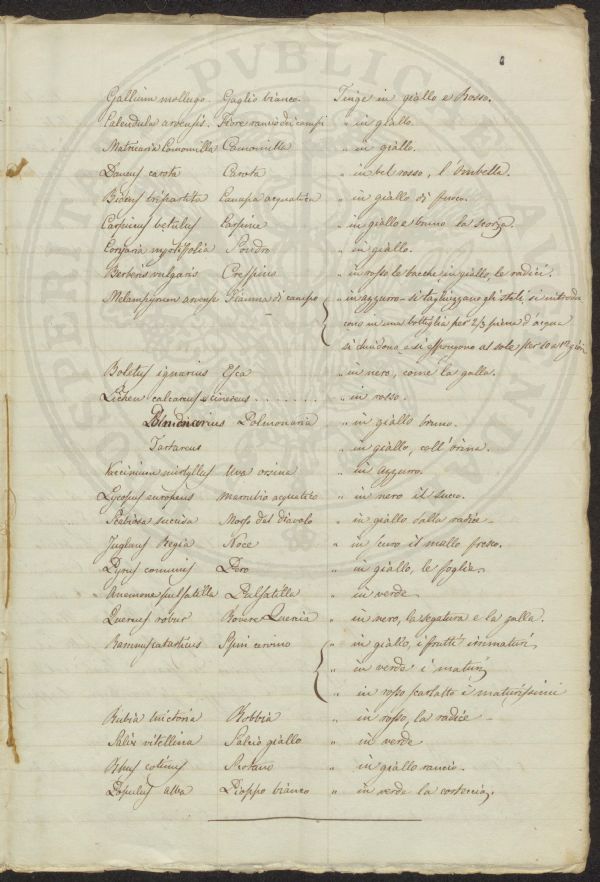 Gallium mollugo. Gaglio bianco. Tinge in giallo e Rosso.
Calendula arvensis. Fiore rancio dei campi " in giallo.
Matricaria Camomilla Camomilla " in giallo.
Daucus carota Carota " in bel rosso, l'ombella.
Bidens tripartita Canapa acquatica " in giallo di fuoco.
Carpinus betulus Carpine " in giallo e bruno la scorza.
Coriaria myrtifolia " in giallo.
Berberis vulgaris Crespino " in rosso le bacche, in giallo, le radici.
Melampyrum arvense Fiamma di campo " in azzurro - si tagliuzzano gli steli si introdu
cono in una bottiglia per 2/3 piena d'acqua
si chiudono e si espongono al sole, per 10 a 12 gior
Boletus igniarius Esca " in nero, come la galla.
Lichen calcareus e cinereus . . . . . . . . " in rosso.
Pulmonarius Polmonaria " in giallo bruno.
Tartareus " in giallo, coll'orina.
Vaccinium mirtyllus Uva orsina " in azzurro.
Lycopus europeus marrubio aquatico " in nero il succo.
Scabiosa succisa Morso del diavolo " in giallo dalla radice -
Juglans Regia Noce " in scuro il mallo fresco.
Pyrus comunis Pero " in giallo, le foglie.
Anemone pulsatilla Pulsatilla " in verde
Quercus robur Rovere Quercia " in nero, la segatura e la galla.
Ramnus catarticus Spin cervino " in giallo, i frutti immaturi
" in verde i maturi
" in rosso scarlatto i maturissimi
Rubia tinctoria Robbia " in rosso, la radice -
Salix vitellina Salcio giallo " in verde
Rhus cotinus Scotano " in giallo rancio.
Populus alba Pioppo bianco " in verde la corteccia.
PERITAS PVBLICAE